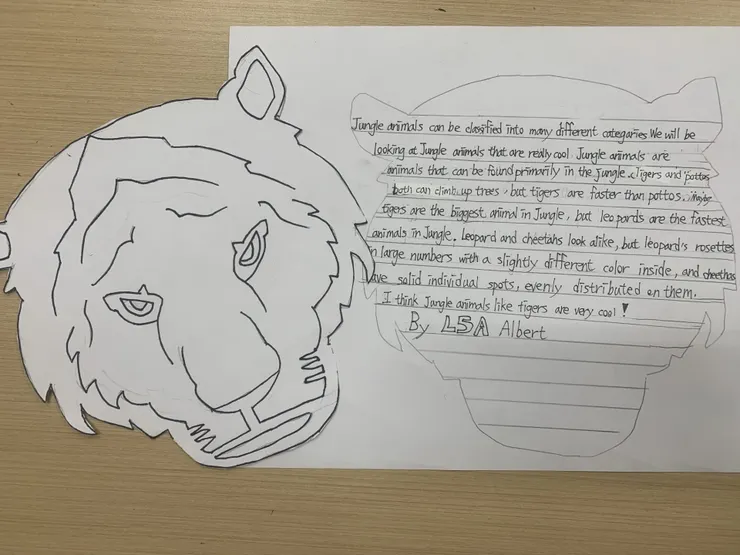 Jungle animals can be classified into many different categaries We will be
looking at Jungle animals that are really cool Jungle animals are
animals that can be found primarily in the Jungle. Tigers and pottos
both can climb up trees, but tigers are faster than pottos. Maybe
tigers are the biggest animal in Jungle, but leopards are the fastest
animals in Jungle. Leopard and cheetahs look alike, but leopard's rosettes
in large numbers with a slightly different color inside, and cheethas
ave solid individual spots, evenly distributed on them.
I think Jungle animals like tigers are very cool!
By L5A Albert